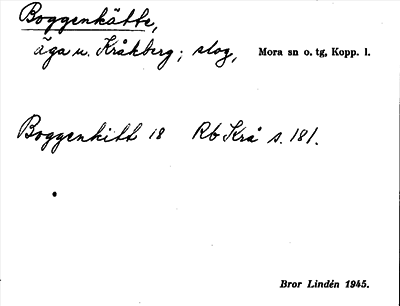 Boggenkätte,
äga u. Kråkberg; slog, Mora sn o. tg, Kopp. l.
Boggenkitt 18 Rb Krå s. 181.
Bror Lindén 1945.